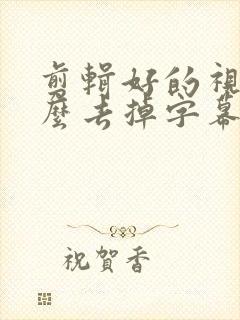 剪輯好的視
麼去掉字幕
祝賀香